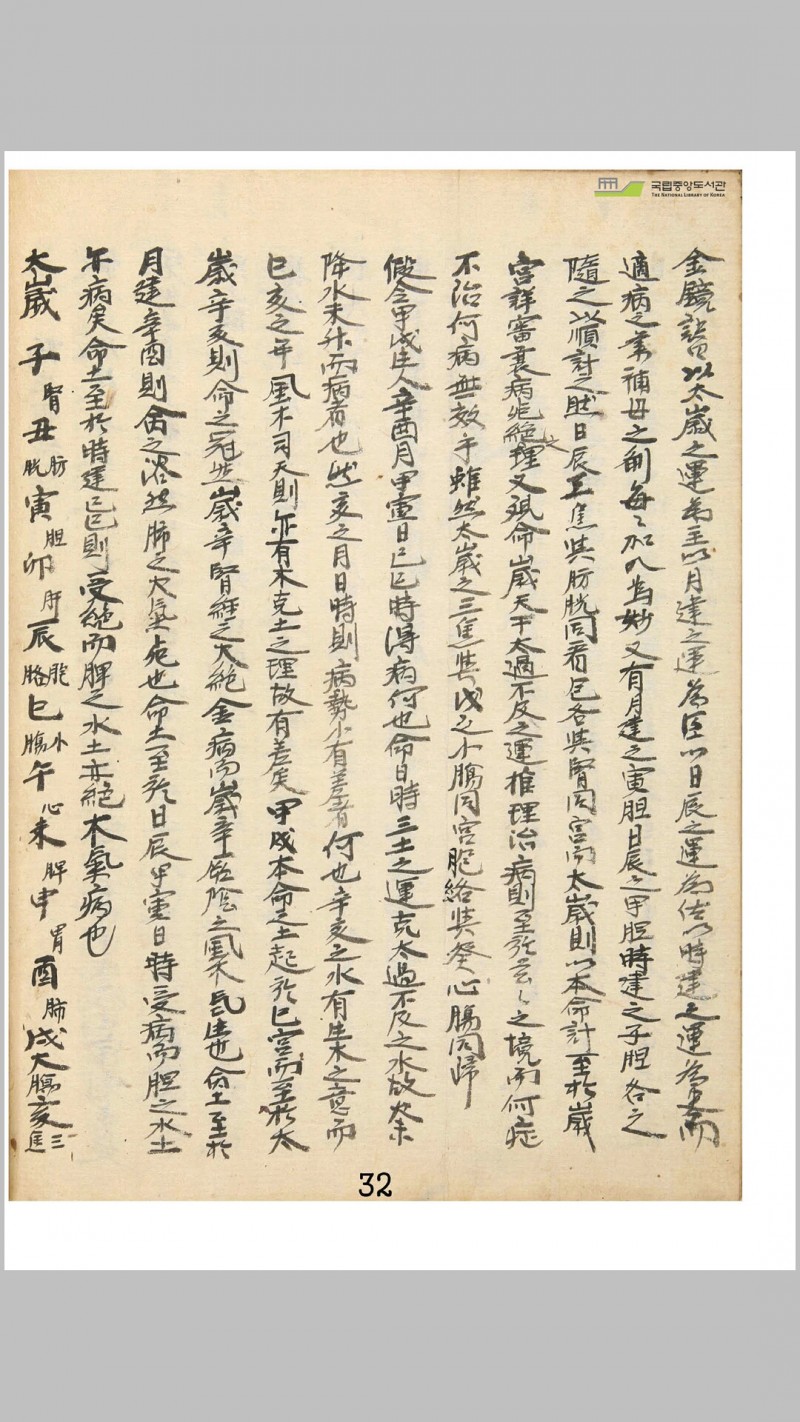 国립중앙도서관
THE NATIONAL LIBRARY OF KOREA
金鏡論曰以太歲之運爲主以月建之運爲臣以日辰之運爲佐以時建之運爲使而
適病之業補母之劑每々加入爲妙又有月建之寅胆日辰之甲胆時建之子胆各之
隨之以順計之然日辰三焦其肪胱同看巳各其腎同宮而太歲則以本命計至於歲
宮詳審衰病死絶之理又現命歲天干太過不及之運推理治病則至於玄々之境而何症
不治何病無效乎雖然太歲之三焦其戌之小膓同宮胞絡其癸心腸同歸
假令甲戌生人辛酉月甲寅日己巳時得病何也命日時三土之運克太過不及之水故
降水未升而病者也然亥之月日時則病勢小有差者何也辛亥之水有生木之意而
巳亥之年風木司天則亦有木克土之理故有差矣甲戌本命之土起於巳宮而至於太
歲辛亥則命之冠然歲辛腎經之大絶金病而歲辛厥陰之風木氏生也命土至於
月建辛酉則命之浴然肺之火氣死也命土至於日辰甲寅日時受病而胆之水土
午病矣命土至於時建己巳則受絶而脾之水土亦絶木氣病也
太歲 子腎丑肪胱寅胆卯肝辰胞胳巳小膓午心未脾申胃酉肺戌大膓亥三焦
32